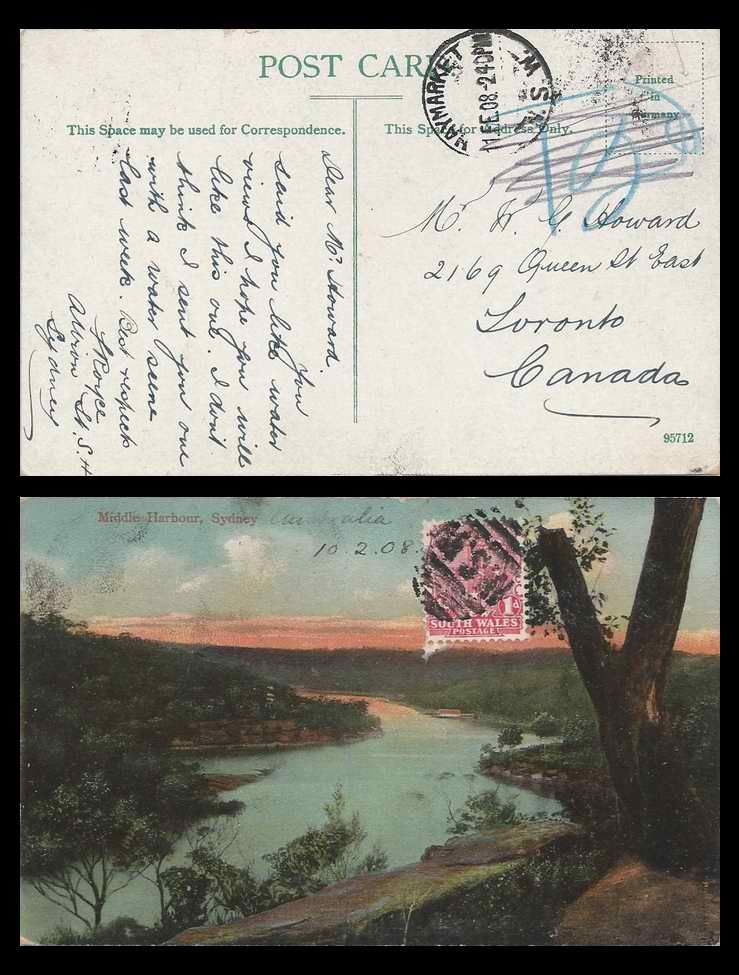 POST CARD
HAYMARKET
11.FE.08.2 40PM
N.S.W.
Printed
in
Germany
This Space may be used for Correspondence.
This Space for Address Only.
Dear Mr Howard.
You
said you like water
views I hope you will
like this one. I don't
think I sent you one
with a water scene
last week. Best respects
Albion St. S. H
Sydney
Mr W. G. Howard
2169 Queen St East
Toronto
Canada
95712
Middle Harbour, Sydney Australia
10.2.08.
1d
SOUTH WALES
POSTAGE